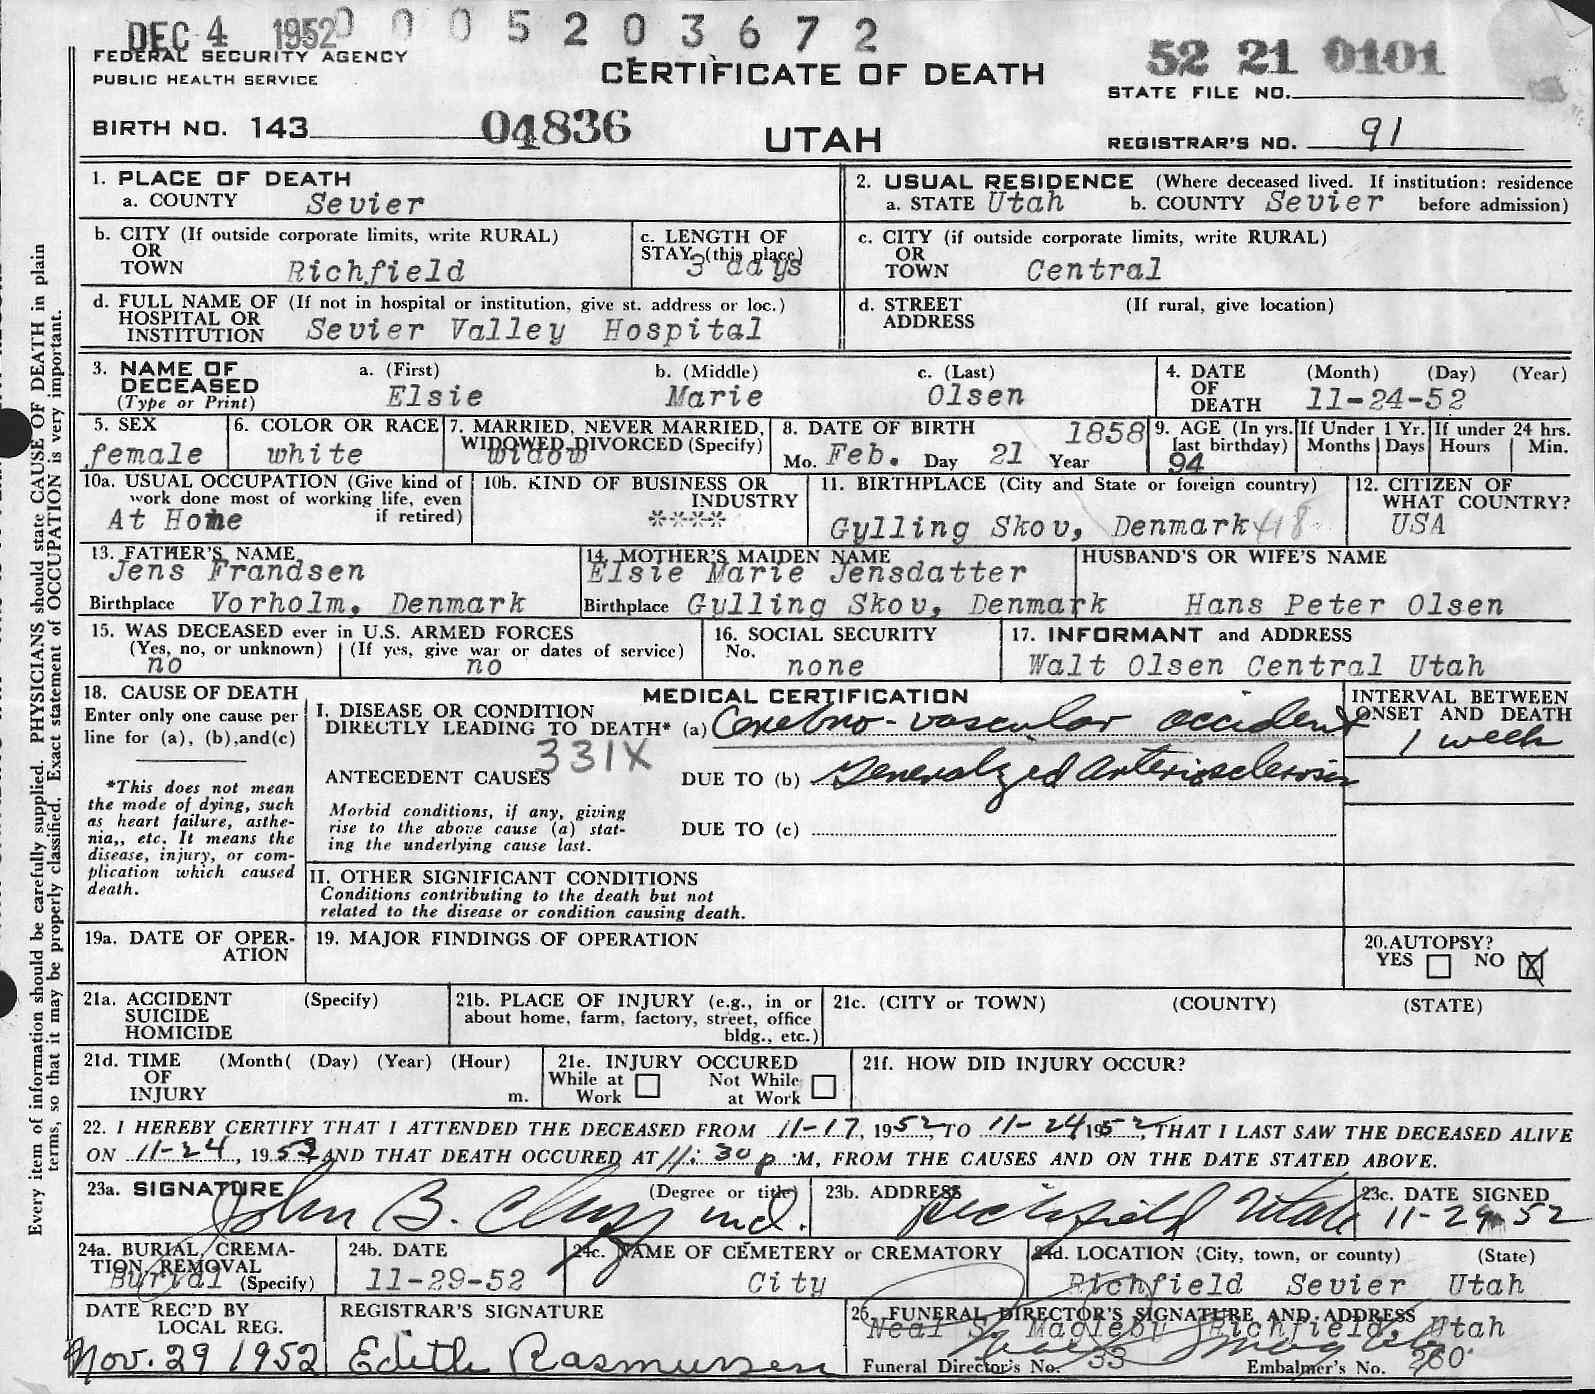 DEC 4 1952 0 0 5 2 0 3 6 7 2
FEDERAL SECURITY AGENCY
PUBLIC HEALTH SERVICE
CERTIFICATE OF DEATH
52 21 0101
STATE FILE NO.
BIRTH NO. 143 04836
UTAH
REGISTRAR'S NO. 91
1. PLACE OF DEATH
a. COUNTY Sevier
2. USUAL RESIDENCE (Where deceased lived. If institution: residence
a. STATE Utah b. COUNTY Sevier before admission)
b. CITY (If outside corporate limits, write RURAL)
OR
TOWN Richfield
c. LENGTH OF
STAY (this place)
3 days
c. CITY (if outside corporate limits, write RURAL)
OR
TOWN Central
d. FULL NAME OF (If not in hospital or institution, give st. address or loc.)
HOSPITAL OR
INSTITUTION Sevier Valley Hospital
d. STREET (If rural, give location)
ADDRESS
3. NAME OF
DECEASED
(Type or Print)
a. (First) b. (Middle) c. (Last)
Elsie Marie Olsen
4. DATE (Month) (Day) (Year)
OF
DEATH 11-24-52
5. SEX
female
6. COLOR OR RACE
white
7. MARRIED, NEVER MARRIED,
WIDOWED, DIVORCED (Specify)
widow
8. DATE OF BIRTH 1858
Mo. Feb. Day 21 Year
9. AGE (In yrs.
last birthday)
94
If Under 1 Yr.
Months Days
If under 24 hrs.
Hours Min.
10a. USUAL OCCUPATION (Give kind of
work done most of working life, even
if retired)
At Home
10b. KIND OF BUSINESS OR
INDUSTRY
****
11. BIRTHPLACE (City and State or foreign country)
Gylling Skov, Denmark
12. CITIZEN OF
WHAT COUNTRY?
USA
13. FATHER'S NAME
Jens Frandsen
Birthplace Vorholm, Denmark
14. MOTHER'S MAIDEN NAME
Elsie Marie Jensdatter
Birthplace Gylling Skov, Denmark
HUSBAND'S OR WIFE'S NAME
Hans Peter Olsen
15. WAS DECEASED ever in U.S. ARMED FORCES
(Yes, no, or unknown) (If yes, give war or dates of service)
no no
16. SOCIAL SECURITY
No.
none
17. INFORMANT and ADDRESS
Walt Olsen Central Utah
18. CAUSE OF DEATH
Enter only one cause per
line for (a), (b),and(c)
*This does not mean
the mode of dying, such
as heart failure, asthe-
nia,, etc. It means the
disease, injury, or com-
plication which caused
death.
MEDICAL CERTIFICATION
I. DISEASE OR CONDITION
DIRECTLY LEADING TO DEATH* (a) Cerebro-vascular accident
331X
ANTECEDENT CAUSES DUE TO (b) Generalized arteriosclerosis
Morbid conditions, if any, giving
rise to the above cause (a) stat-
ing the underlying cause last.
DUE TO (c)
INTERVAL BETWEEN
ONSET AND DEATH
1 week
II. OTHER SIGNIFICANT CONDITIONS
Conditions contributing to the death but not
related to the disease or condition causing death.
19a. DATE OF OPER-
ATION
19. MAJOR FINDINGS OF OPERATION
20.AUTOPSY?
YES NO X
21a. ACCIDENT (Specify)
SUICIDE
HOMICIDE
21b. PLACE OF INJURY (e.g., in or
about home, farm, factory, street, office
bldg., etc.)
21c. (CITY or TOWN) (COUNTY) (STATE)
21d. TIME (Month( (Day) (Year) (Hour)
OF
INJURY m.
21e. INJURY OCCURED
While at Not While
Work at Work
21f. HOW DID INJURY OCCUR?
22. I HEREBY CERTIFY THAT I ATTENDED THE DECEASED FROM 11-17, 1952, TO 11-24 1952, THAT I LAST SAW THE DECEASED ALIVE
ON 11-24, 1952 AND THAT DEATH OCCURED AT 11:30 p.M, FROM THE CAUSES AND ON THE DATE STATED ABOVE.
23a. SIGNATURE (Degree or title)
John B. md.
23b. ADDRESS
Richfield Utah
23c. DATE SIGNED
11-29-52
24a. BURIAL, CREMA-
TION, REMOVAL
Burial (Specify)
24b. DATE
11-29-52
24c. NAME OF CEMETERY or CREMATORY
City
24d. LOCATION (City, town, or county) (State)
Richfield Sevier Utah
DATE REC'D BY
LOCAL REG.
Nov. 29 1952
REGISTRAR'S SIGNATURE
Edith Rasmussen
25. FUNERAL DIRECTOR'S SIGNATURE AND ADDRESS
Neal S. Magleby Richfield, Utah
Funeral Director's No. 33 Embalmer's No. 260
Every item of information should be carefully supplied. PHYSICIANS should state CAUSE OF DEATH in plain
terms, so that it may be properly classified. Exact statement of OCCUPATION is very important.